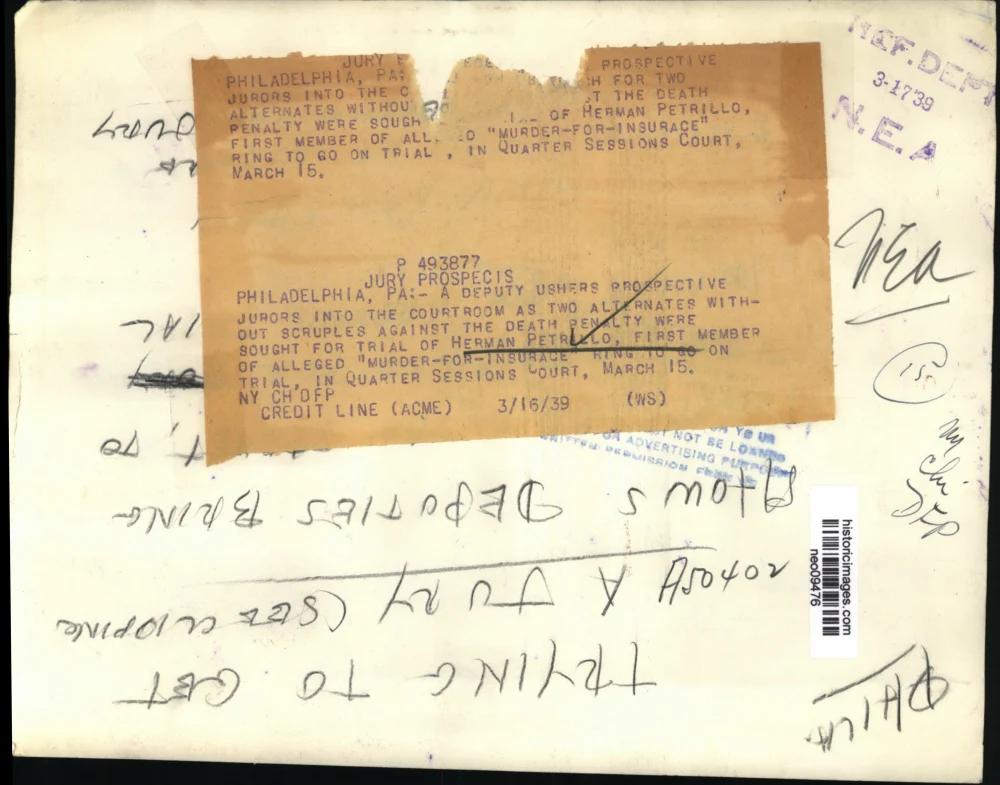 JURY
PROSPECTIVE
PHILADELPHIA, PA:
H FOR TWO
JURORS INTO THE C
T THE DEATH
ALTERNATES WITHOU
OF HERMAN PETRILLO,
PENALTY WERE SOUGH
FIRST MEMBER OF ALL
D "MURDER-FOR-INSURACE"
RING TO GO ON TRIAL , IN QUARTER SESSIONS COURT,
MARCH 15.
P 493877
JURY PROSPECIS
PHILADELPHIA, PA:- A DEPUTY USHERS PROSPECTIVE
JURORS INTO THE COURTROOM AS TWO ALTERNATES WITH-
OUT SCRUPLES AGAINST THE DEATH PENALTY WERE
SOUGHT FOR TRIAL OF HERMAN PETRILLO, FIRST MEMBER
OF ALLEGED "MURDER-FOR-INSURANCE" RING TO GO ON
TRIAL, IN QUARTER SESSIONS COURT, MARCH 15.
NY CH DFP
CREDIT LINE (ACME) 3/16/39 (WS)
REF. DEPT
3-17 39
N.E.A
NEA
NOT BE LOANED
OR ADVERTISING PURPOSES
WRITTEN PERMISSION FROM
ny
chi
DFP
historicimages.com
neo09476
PHILA
TRYING TO GET
A JURY (SEE CLIPPING
A50402
SHOWS DEPUTIES BRING
TO
IAL
JURY